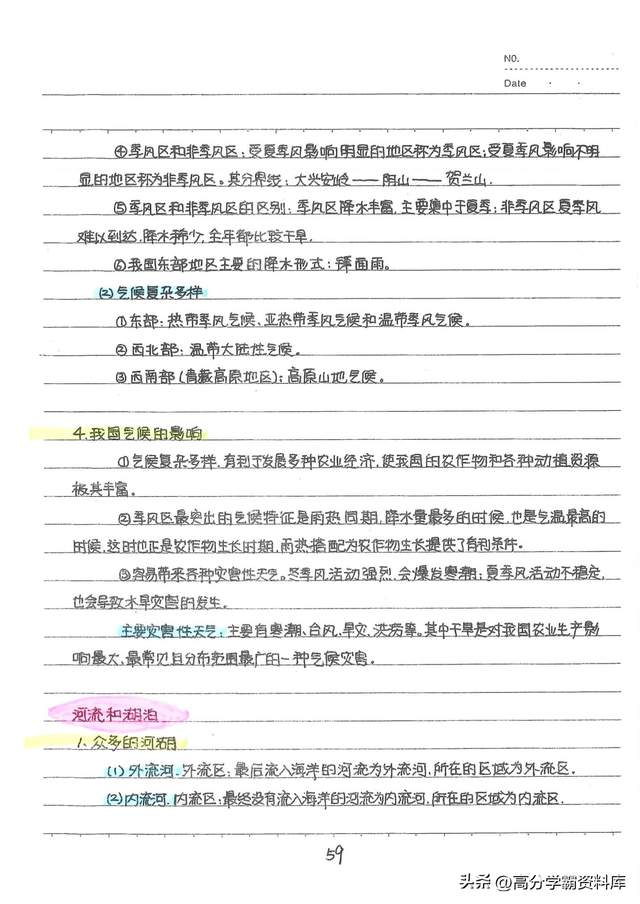 NO.
Date
④季风区和非季风区:受夏季风影响明显的地区称为季风区;受夏季风影响不明
显的地区称为非季风区。其分界线:大兴安岭——阴山——贺兰山.
⑤季风区和非季风区的区别:季风区降水丰富,主要集中于夏季;非季风区夏季风
难以到达,降水稀少,全年都比较干旱.
⑥我国东部地区主要的降水形式:锋面雨。
(2)气候复杂多样
①东部:热带季风气候、亚热带季风气候和温带季风气候。
②西北部:温带大陆性气候。
③西南部(青藏高原地区):高原山地气候。
4.我国气候的影响
①气候复杂多样,有利于发展多种农业经济,使我国的农作物和各种动植资源
极其丰富。
②季风区最突出的气候特征是雨热同期,降水量最多的时候,也是气温最高的
时候,这时也正是农作物生长时期,雨热搭配为农作物生长提供了有利条件。
③容易带来各种灾害性天气。冬季风活动强烈,会爆发寒潮;夏季风活动不稳定,
也会导致水旱灾害的发生。
主要灾害性天气:主要有寒潮、台风、旱灾、洪涝等。其中干旱是对我国农业生产影
响最大、最常见且分布范围最广的一种气候灾害。
河流和湖泊
1.众多的河湖
(1)外流河.外流区:最后流入海洋的河流为外流河,所在的区域为外流区.
(2)内流河.内流区:最终没有流入海洋的河流为内流河,所在的区域为内流区.
59
头条@高分学霸资料库